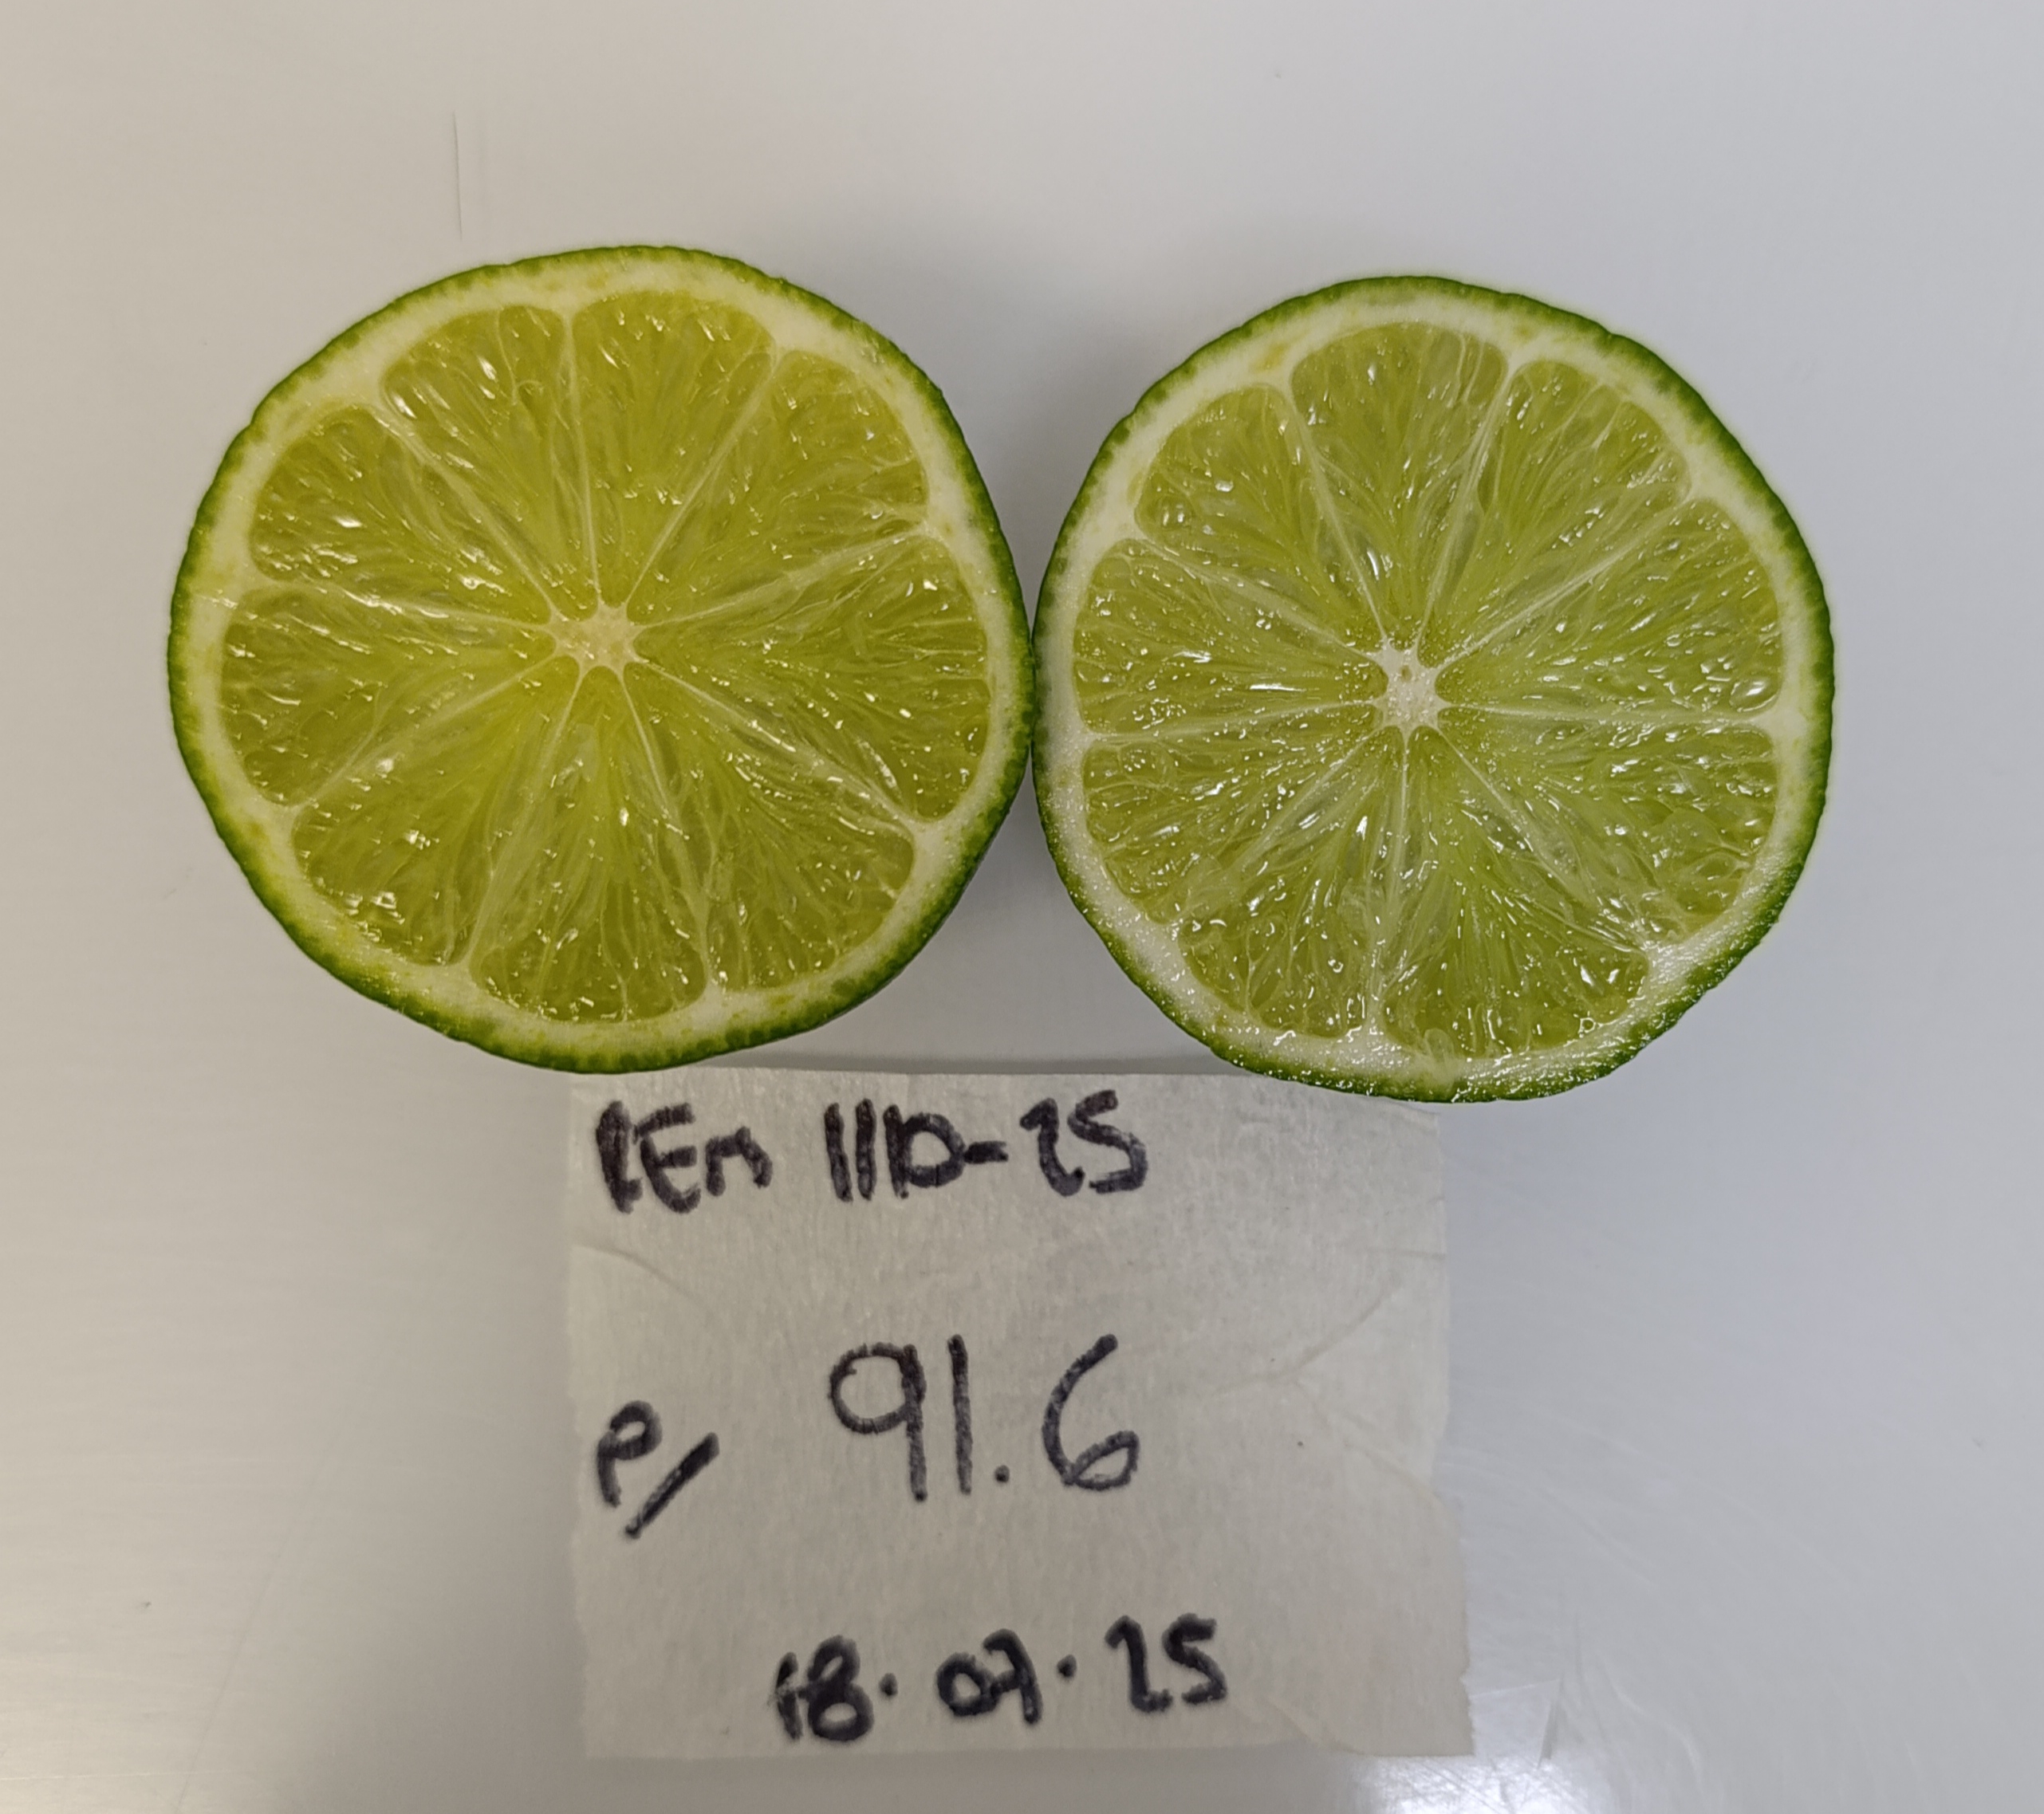 REM 1110-25
P/ 91.6
18.07.25